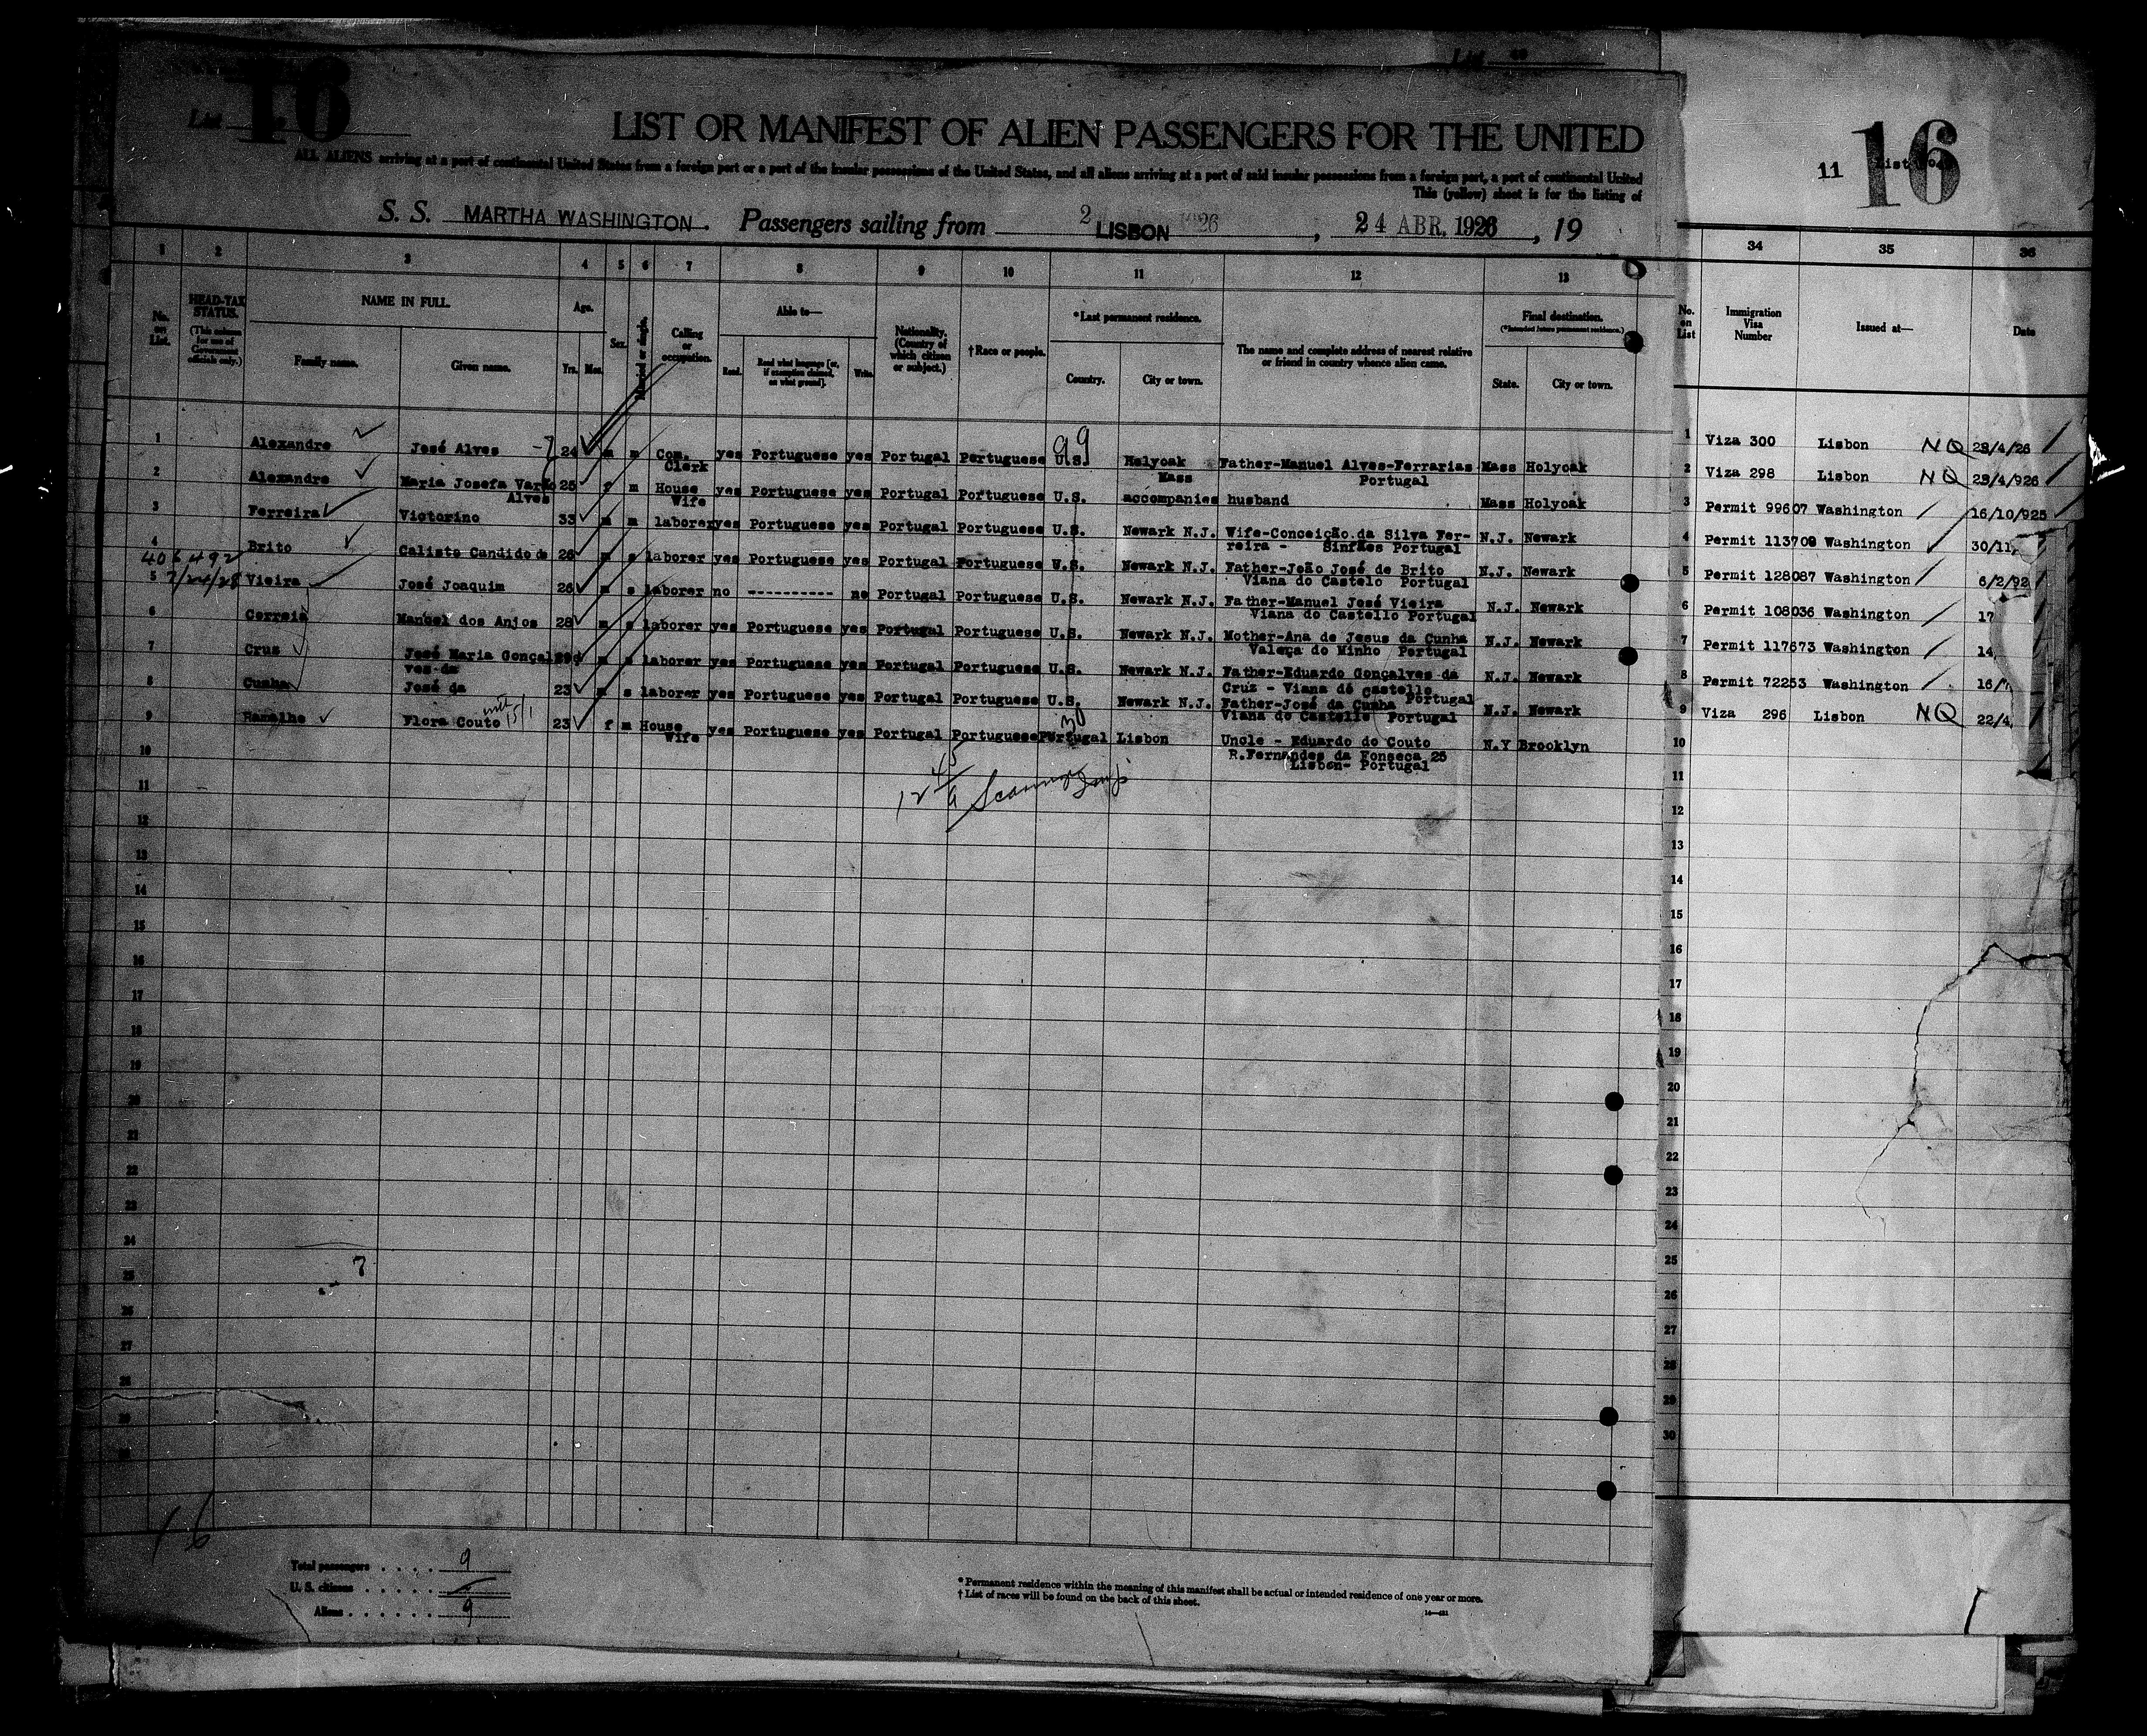 16
List
LIST OR MANIFEST OF ALIEN PASSENGERS FOR THE UNITED
ALL ALIENS arriving at a port of continental United States from a foreign port or a port of the insular possessions of the United States, and all aliens arriving at a port of said insular possessions from a foreign port, a port of continental United
This (yellow) sheet is for the listing of
S. S. MARTHA WASHINGTON. Passengers sailing from 2 LISBON 1926, 24 ABR. 1926, 19
11 List No. 16
1 2 3 4 5 6 7 8 9 10 11 12 13 34 35 36
No. on List.
HEAD-TAX STATUS. (This column for use of Government officials only.)
NAME IN FULL.
Family name. Given name.
Age. Yrs. Mos.
Sex.
Married or single.
Calling or occupation.
Able to—
Read. Read what language [or, if exemption claimed, on what ground]. Write.
Nationality. (Country of which citizen or subject.)
†Race or people.
*Last permanent residence.
Country. City or town.
The name and complete address of nearest relative or friend in country whence alien came.
Final destination. (*Intended future permanent residence.)
State. City or town.
No. on List
Immigration Visa Number
Issued at—
Date
1 Alexandre José Alves 24 m m Com. Clerk yes Portuguese yes Portugal Portuguese U.S. 99 Holyoak Mass Father-Manuel Alves-Ferrarias Portugal Mass Holyoak 1 Viza 300 Lisbon NQ 23/4/26
2 Alexandre Maria Josefa Alves 25 f m House Wife yes Portuguese yes Portugal Portuguese U.S. accompanies husband Mass Holyoak 2 Viza 298 Lisbon NQ 23/4/926
3 Ferreira Victorino 33 m m laborer yes Portuguese yes Portugal Portuguese U.S. Newark N.J. Wife-Conceição da Silva Ferreira - Sinfães Portugal N.J. Newark 3 Permit 99607 Washington 16/10/925
4 Brito Calisto Candido de 26 m s laborer yes Portuguese yes Portugal Portuguese U.S. Newark N.J. Father-João José de Brito Viana do Castelo Portugal N.J. Newark 4 Permit 113709 Washington 30/11
406492
7/24/28
5 Vieira José Joaquim 26 m s laborer no ---------- no Portugal Portuguese U.S. Newark N.J. Father-Manuel José Vieira Viana do Castello Portugal N.J. Newark 5 Permit 128087 Washington 6/2/92
6 Correia Manuel dos Anjos 28 m s laborer yes Portuguese yes Portugal Portuguese U.S. Newark N.J. Mother-Ana de Jesus da Cunha Valença do Minho Portugal N.J. Newark 6 Permit 108036 Washington 17
7 Crus José Maria Gonçalves da m s laborer yes Portuguese yes Portugal Portuguese U.S. Newark N.J. Father-Eduardo Gonçalves da Cruz - Viana do Castello Portugal N.J. Newark 7 Permit 117673 Washington 14
8 Cunha José da 23 m s laborer yes Portuguese yes Portugal Portuguese U.S. Newark N.J. Father-José da Cunha Viana do Castello Portugal N.J. Newark 8 Permit 72253 Washington 16/
9 Ramalho Flora Couto 23 f m House Wife yes Portuguese yes Portugal Portuguese Portugal 30 Lisbon Uncle - Eduardo do Couto R.Fernandes da Fonseca 25 Lisbon- Portugal N.Y Brooklyn 9 Viza 296 Lisbon NQ 22/4
10 10
11 11
12 12
13 13
14 14
15 15
16 16
17 17
18 18
19 19
20 20
21 21
22 22
23 23
24 24
25 25
26 26
27 27
28 28
29 29
30 30
7
16
Total passengers . . . . 9
U. S. citizens . . . . .
Aliens . . . . . . 9
* Permanent residence within the meaning of this manifest shall be actual or intended residence of one year or more.
† List of races will be found on the back of this sheet.